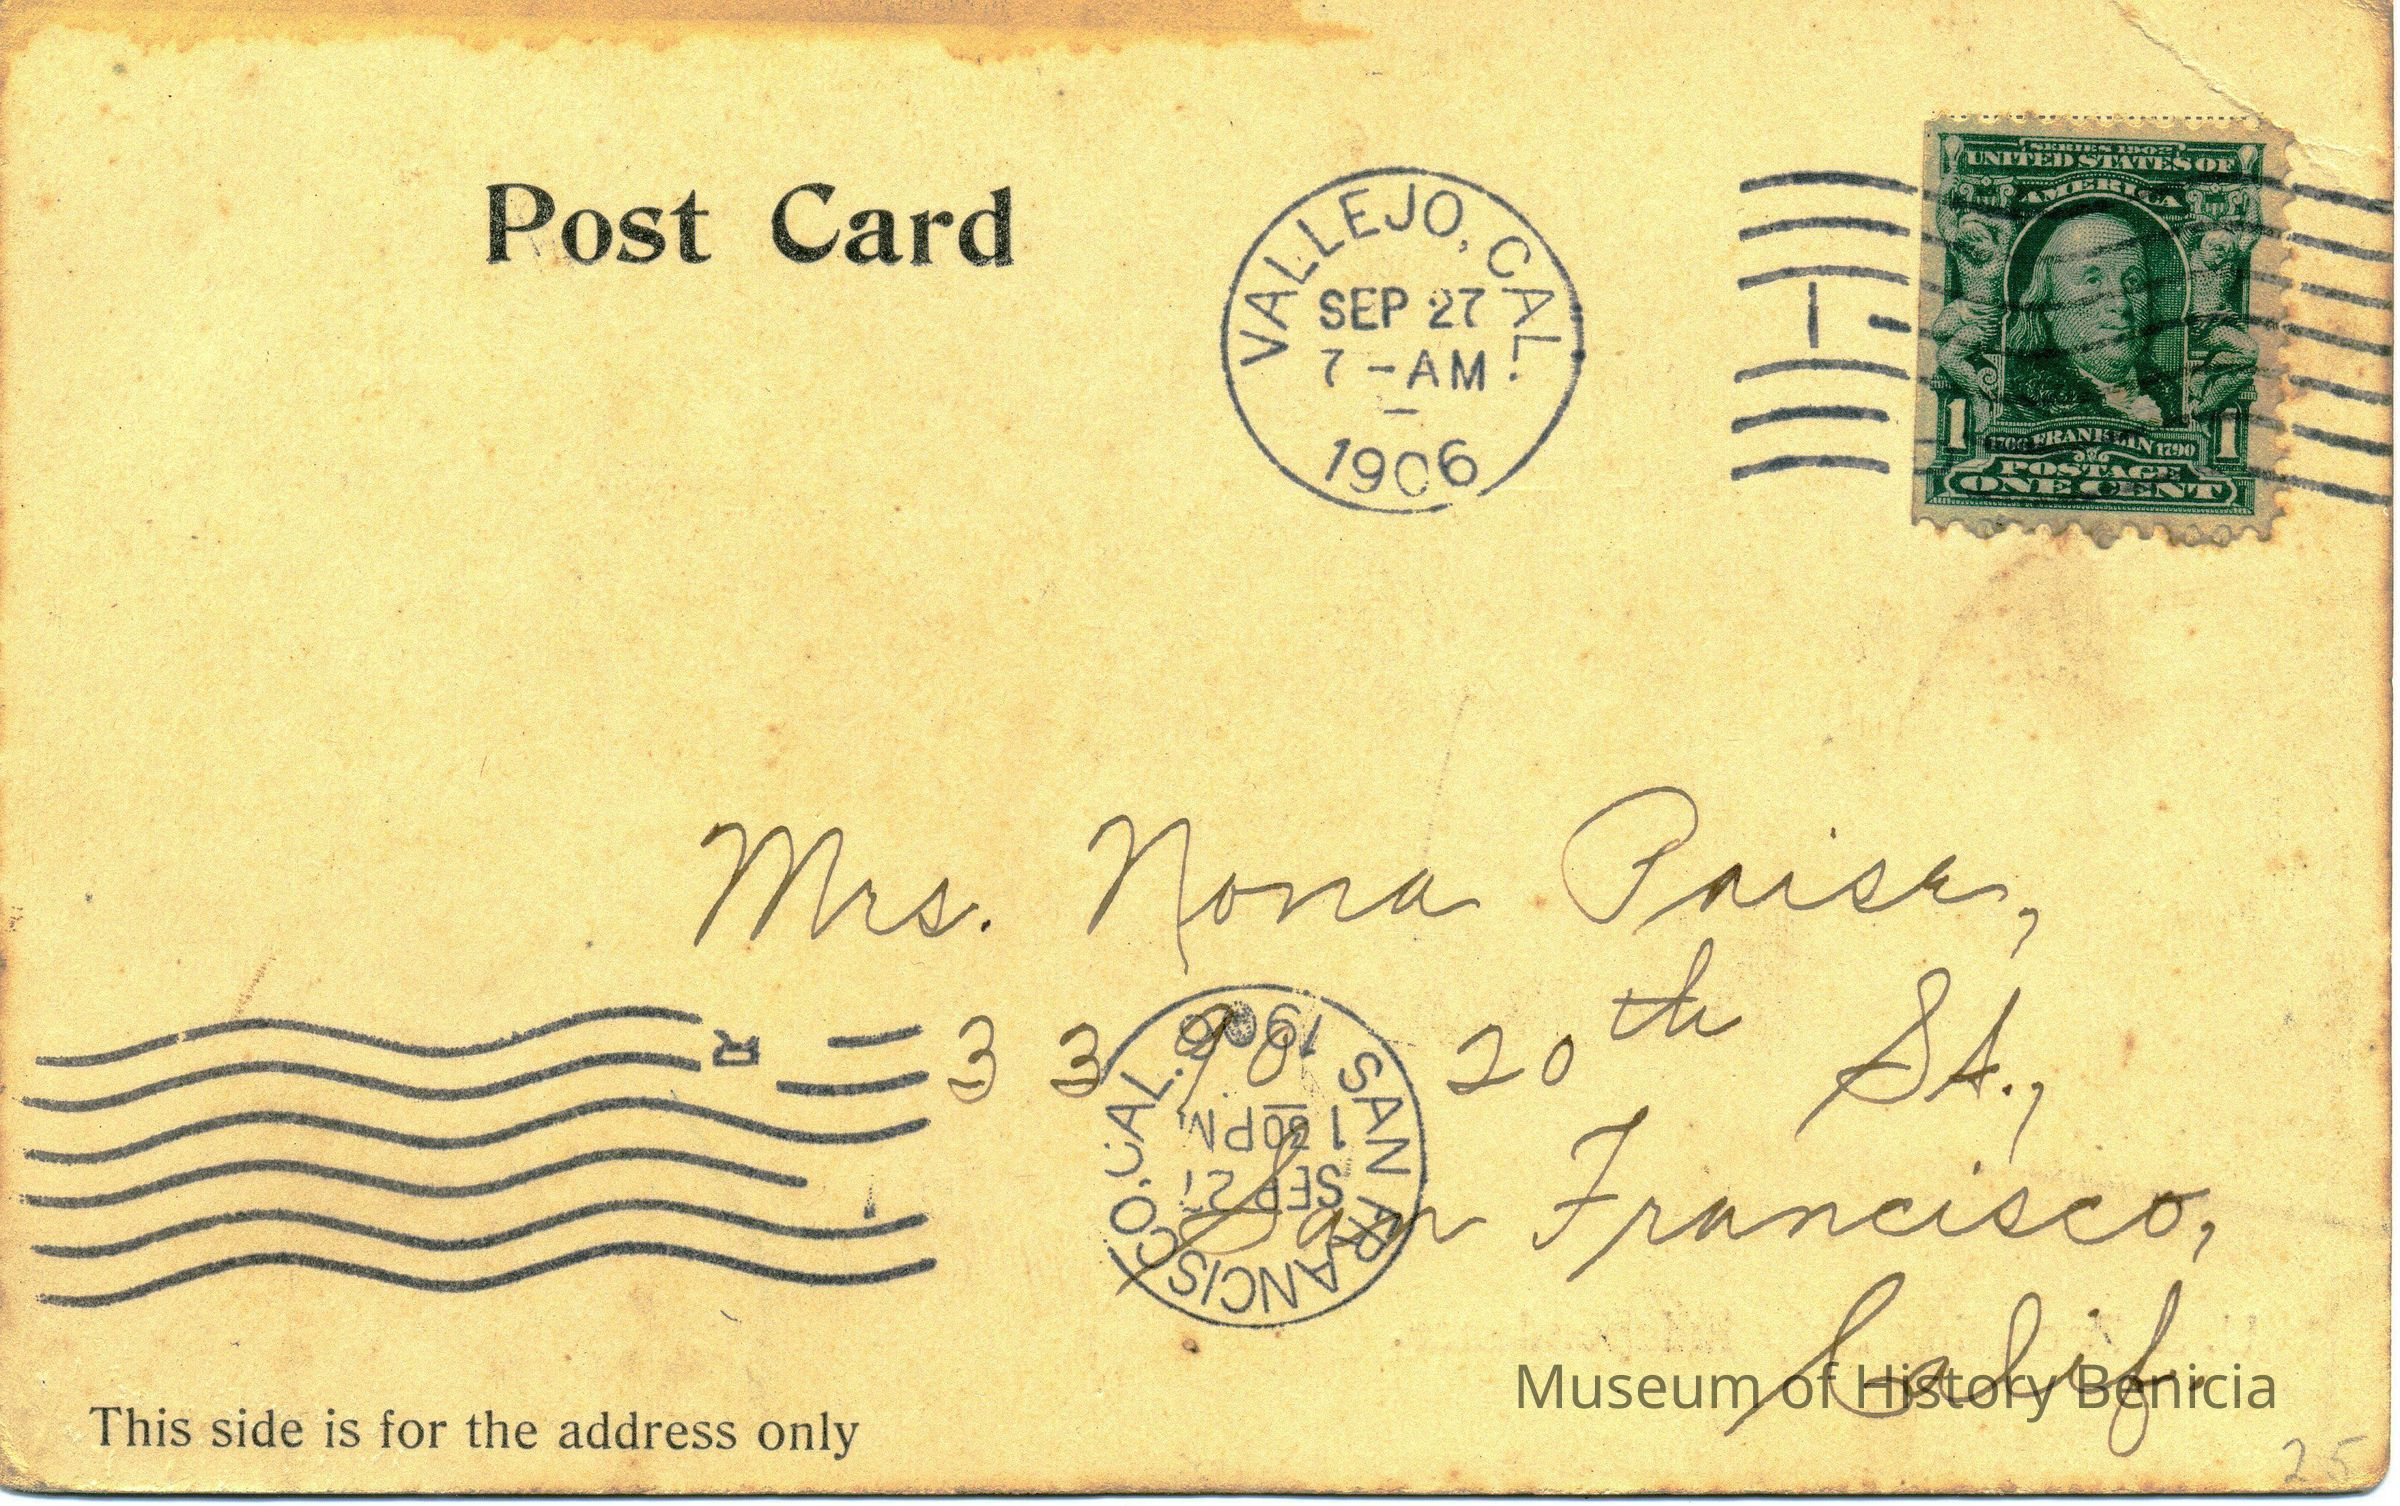 Post Card
VALLEJO, CAL.
SEP 27
7 - AM
1906
SERIES 1902
UNITED STATES OF
AMERICA
1 1
1706 FRANKLIN 1790
POSTAGE
ONE CENT
Mrs. Nona
33 20th St.,
San Francisco,
Calif.
SAN FRANCISCO, CAL.
SEP 27
1 30 PM
1906
R
This side is for the address only
Museum of History Benicia
25